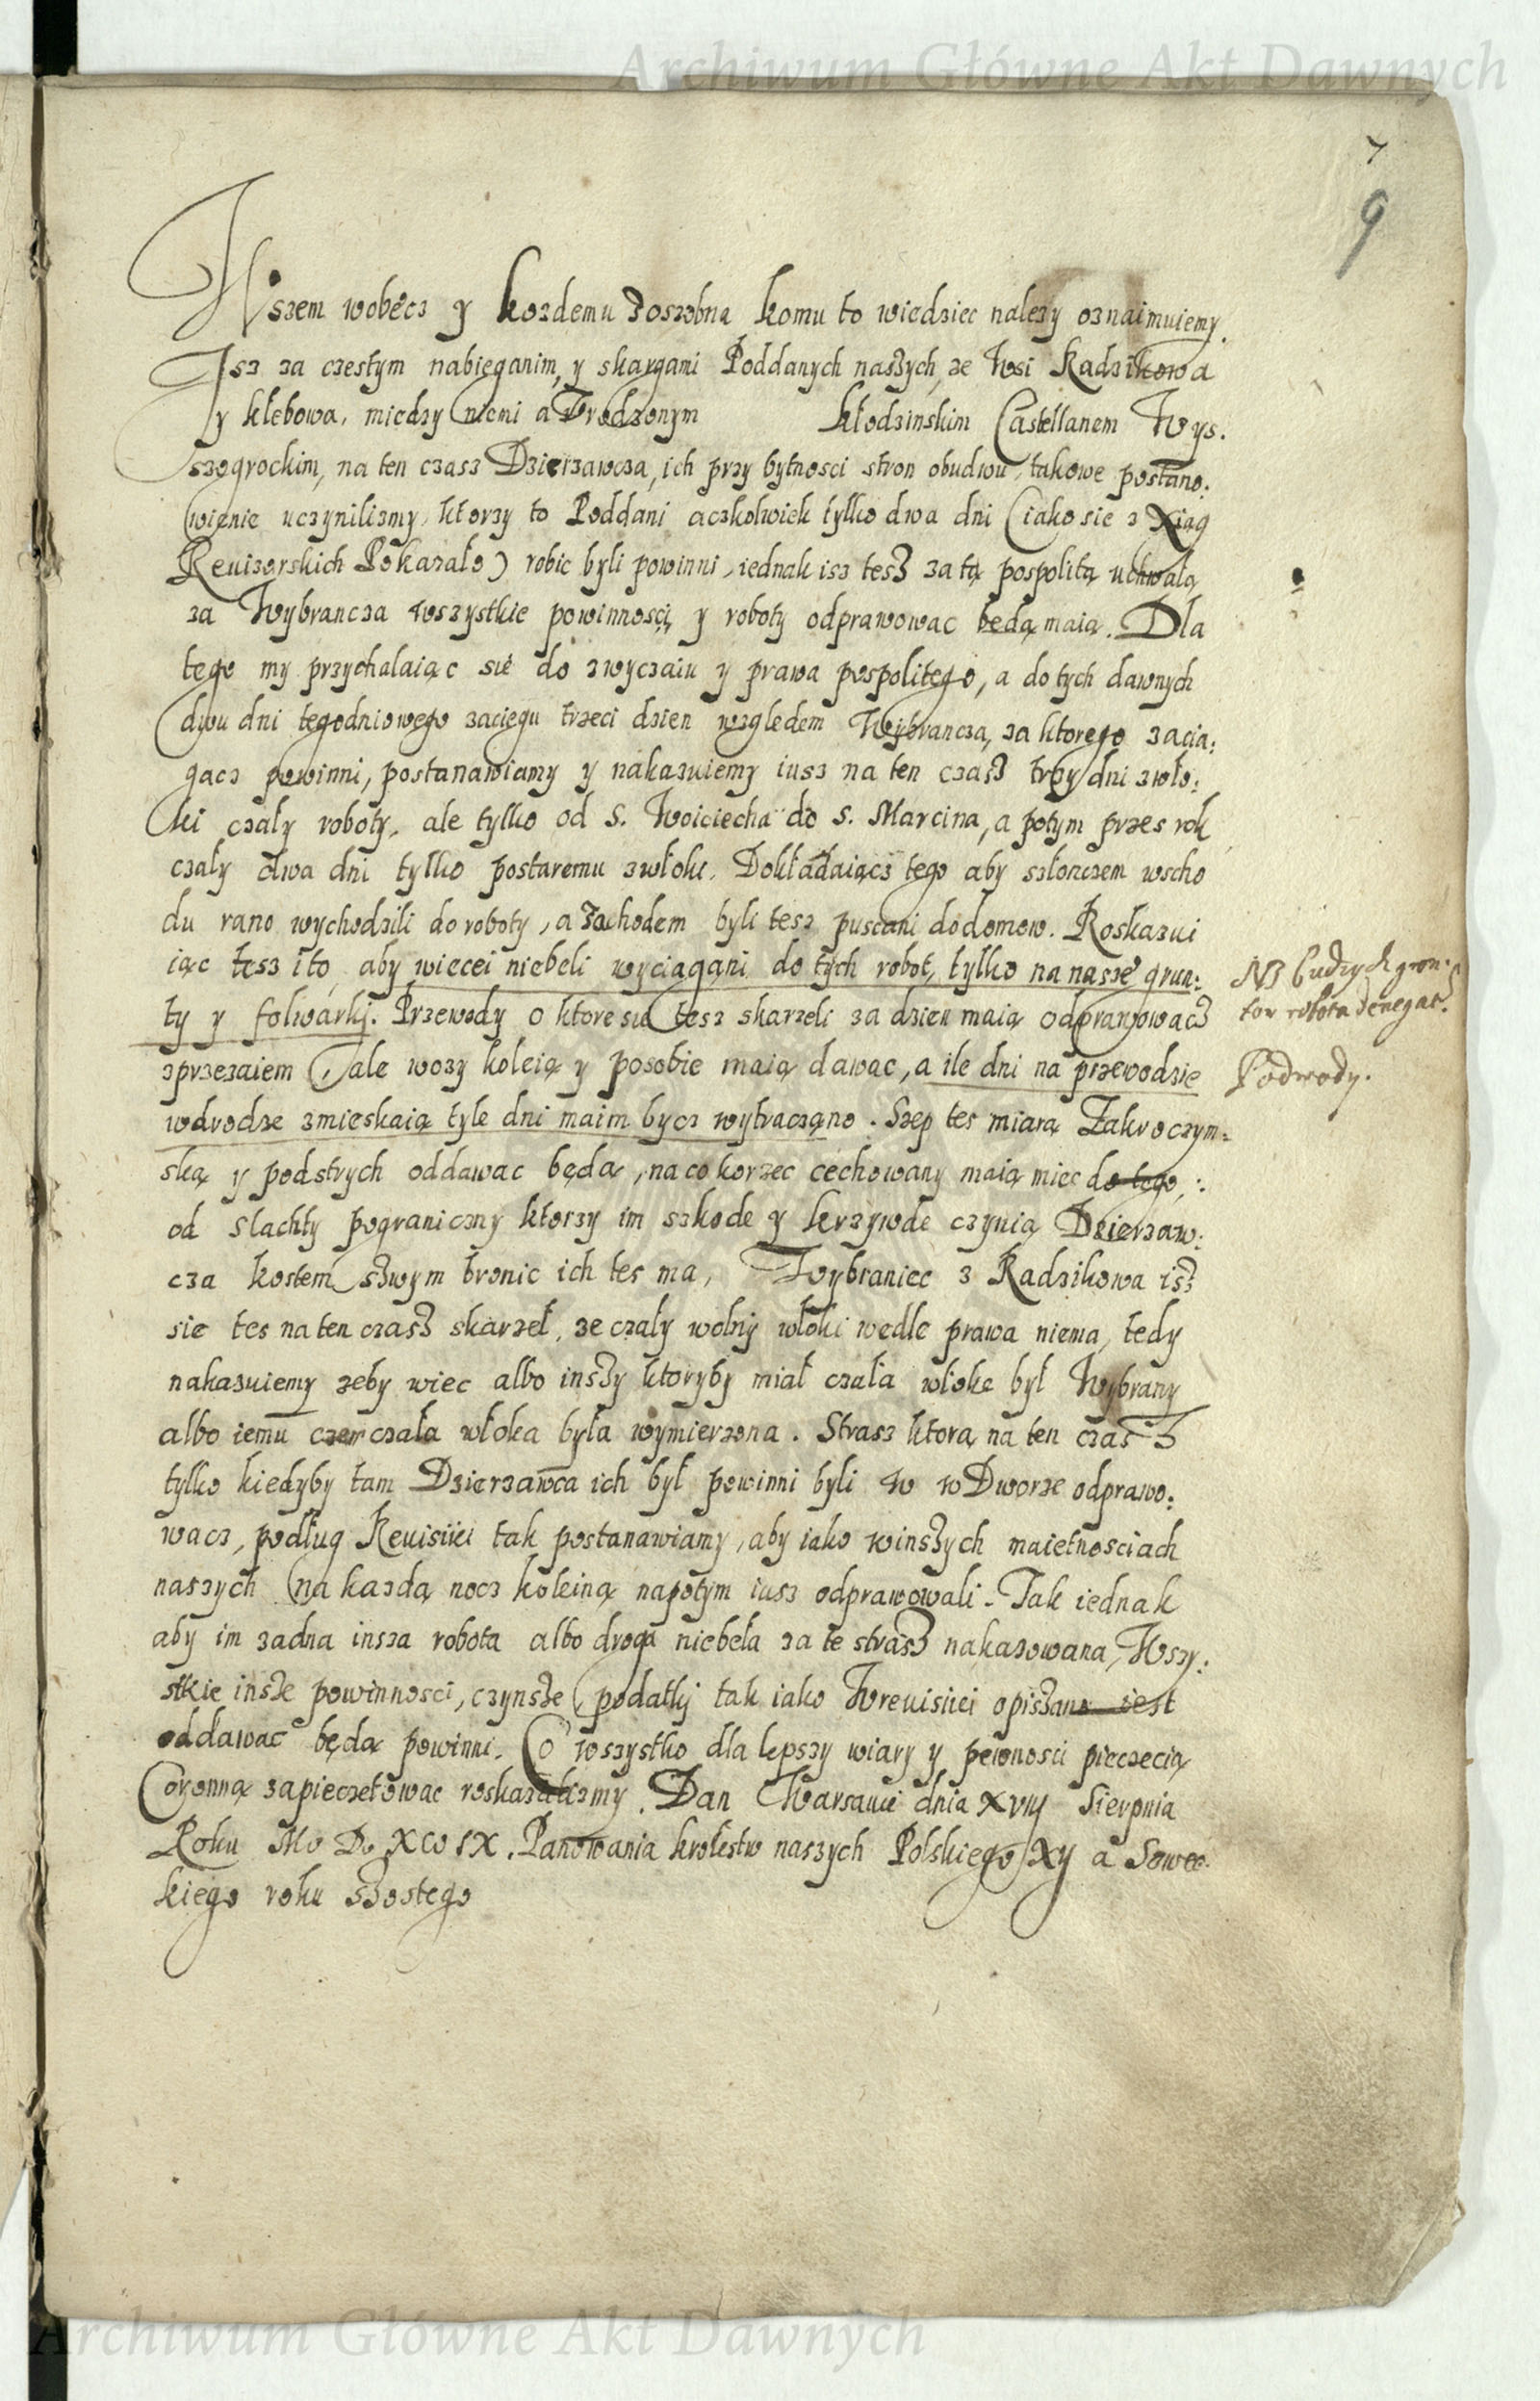 Archiwum Główne Akt Dawnych
7
9
Wszem wobecz y kozdemu zoszobna komu to wiedziec nalezy oznaimuiemy.
Isz za czestym nabieganim, y skargami Poddanych naszych, ze Wsi Radzikowa
y klebowa, miedzy niemi a Vrodzonym Kłodzinskim Castellanem Wys.
szogrockim, na ten czasz Dzierzawcza, ich przy bytnosci stron obudwu, takowe postano:
wienie uczynilizmy, ktorzy to Poddani aczkolwiek tylko dwa dni (iako sie z Xiąg
Reuizorskich Pokazało) robic byli powinni, iednak isz tesz za tą pospolitą uchwałą
za Wybrancza wszystkie powinnosci y roboty odprawowac będą maią. Dla
tego my przychalaiąc sie do zwyczaiu y prawa pospolitego, a do tych dawnych
dwu dni tegodniowego zaciegu trzeci dzien wzgledem Wybrancza, za ktorego zacia:
gacz powinni, postanawiamy y nakazuiemy iusz na ten czasz trzy dni zwło:
ki czały roboty, ale tylko od S. Woiciecha do S. Marcina, a potym przes rok
czały dwa dni tylko postaremu zwłoki. Dokładaiącz tego aby szłonczem wscho
du rano wychodzili do roboty, a zachodem byli tesz puscani do domow. Roskazui
iąc tesz i to, aby wiecei niebeli wyciągani do tych robot, tylko na nasze grun:
ty y folwarki. Przewody o ktore sie tesz skarzeli za dzien maią odprawowacz
zprzezaiem, ale wozy koleią y posobie maią dawac, a ile dni na przewodzie
wdrodze zmieskaią tyle dni maim bycz wytrącząno. Szep tes miarą Zakroczym:
ską y podstrych oddawac będą, na co korzec cechowany maią miec do tego,:
od Slachty pograniczny ktorzy im szkode y krzywde czynią Dzierzaw:
cza kostem szwym bronic ich tes ma, Wybraniec z Radzikowa isz
sie tes na ten czasz skarzeł, ze czały wolny włoki wedle prawa niema, tedy
nakazuiemy zeby wiec albo inszy ktoryby miał czała włoke był Wybrany
albo iemu czała włoka była wymierzona. Strasz ktorą na ten czasz
tylko kiedyby tam Dzierzawca ich był powinni byli w w Dworze odprawo:
wacz, podług Reuisiiei tak postanawiamy, aby iako winszych maietnosciach
naszych na kazdą nocz koleiną napotym iusz odprawowali. Tak iednak
aby im zadna insza robota albo droga niebeła za te strasz nakazowana, Wszy:
stkie insze powinnosci, czynsze podatki tak iako Wreuisiiei opiszano iest
oddawac będą powinni. Co wszystko dla lepszy wiary y pewnosci pieczecią
Coronną zapieczetowac roskazalizmy. Dan Warsauie dnia XVIII Sierpnia
Roku Mo Do XCVIX. Panowania krolestw naszych Polskiego XII a Swec
kiego roku szostego
NB Cudzych gron:
tow robota denegat.
Podwody.
Archiwum Główne Akt Dawnych